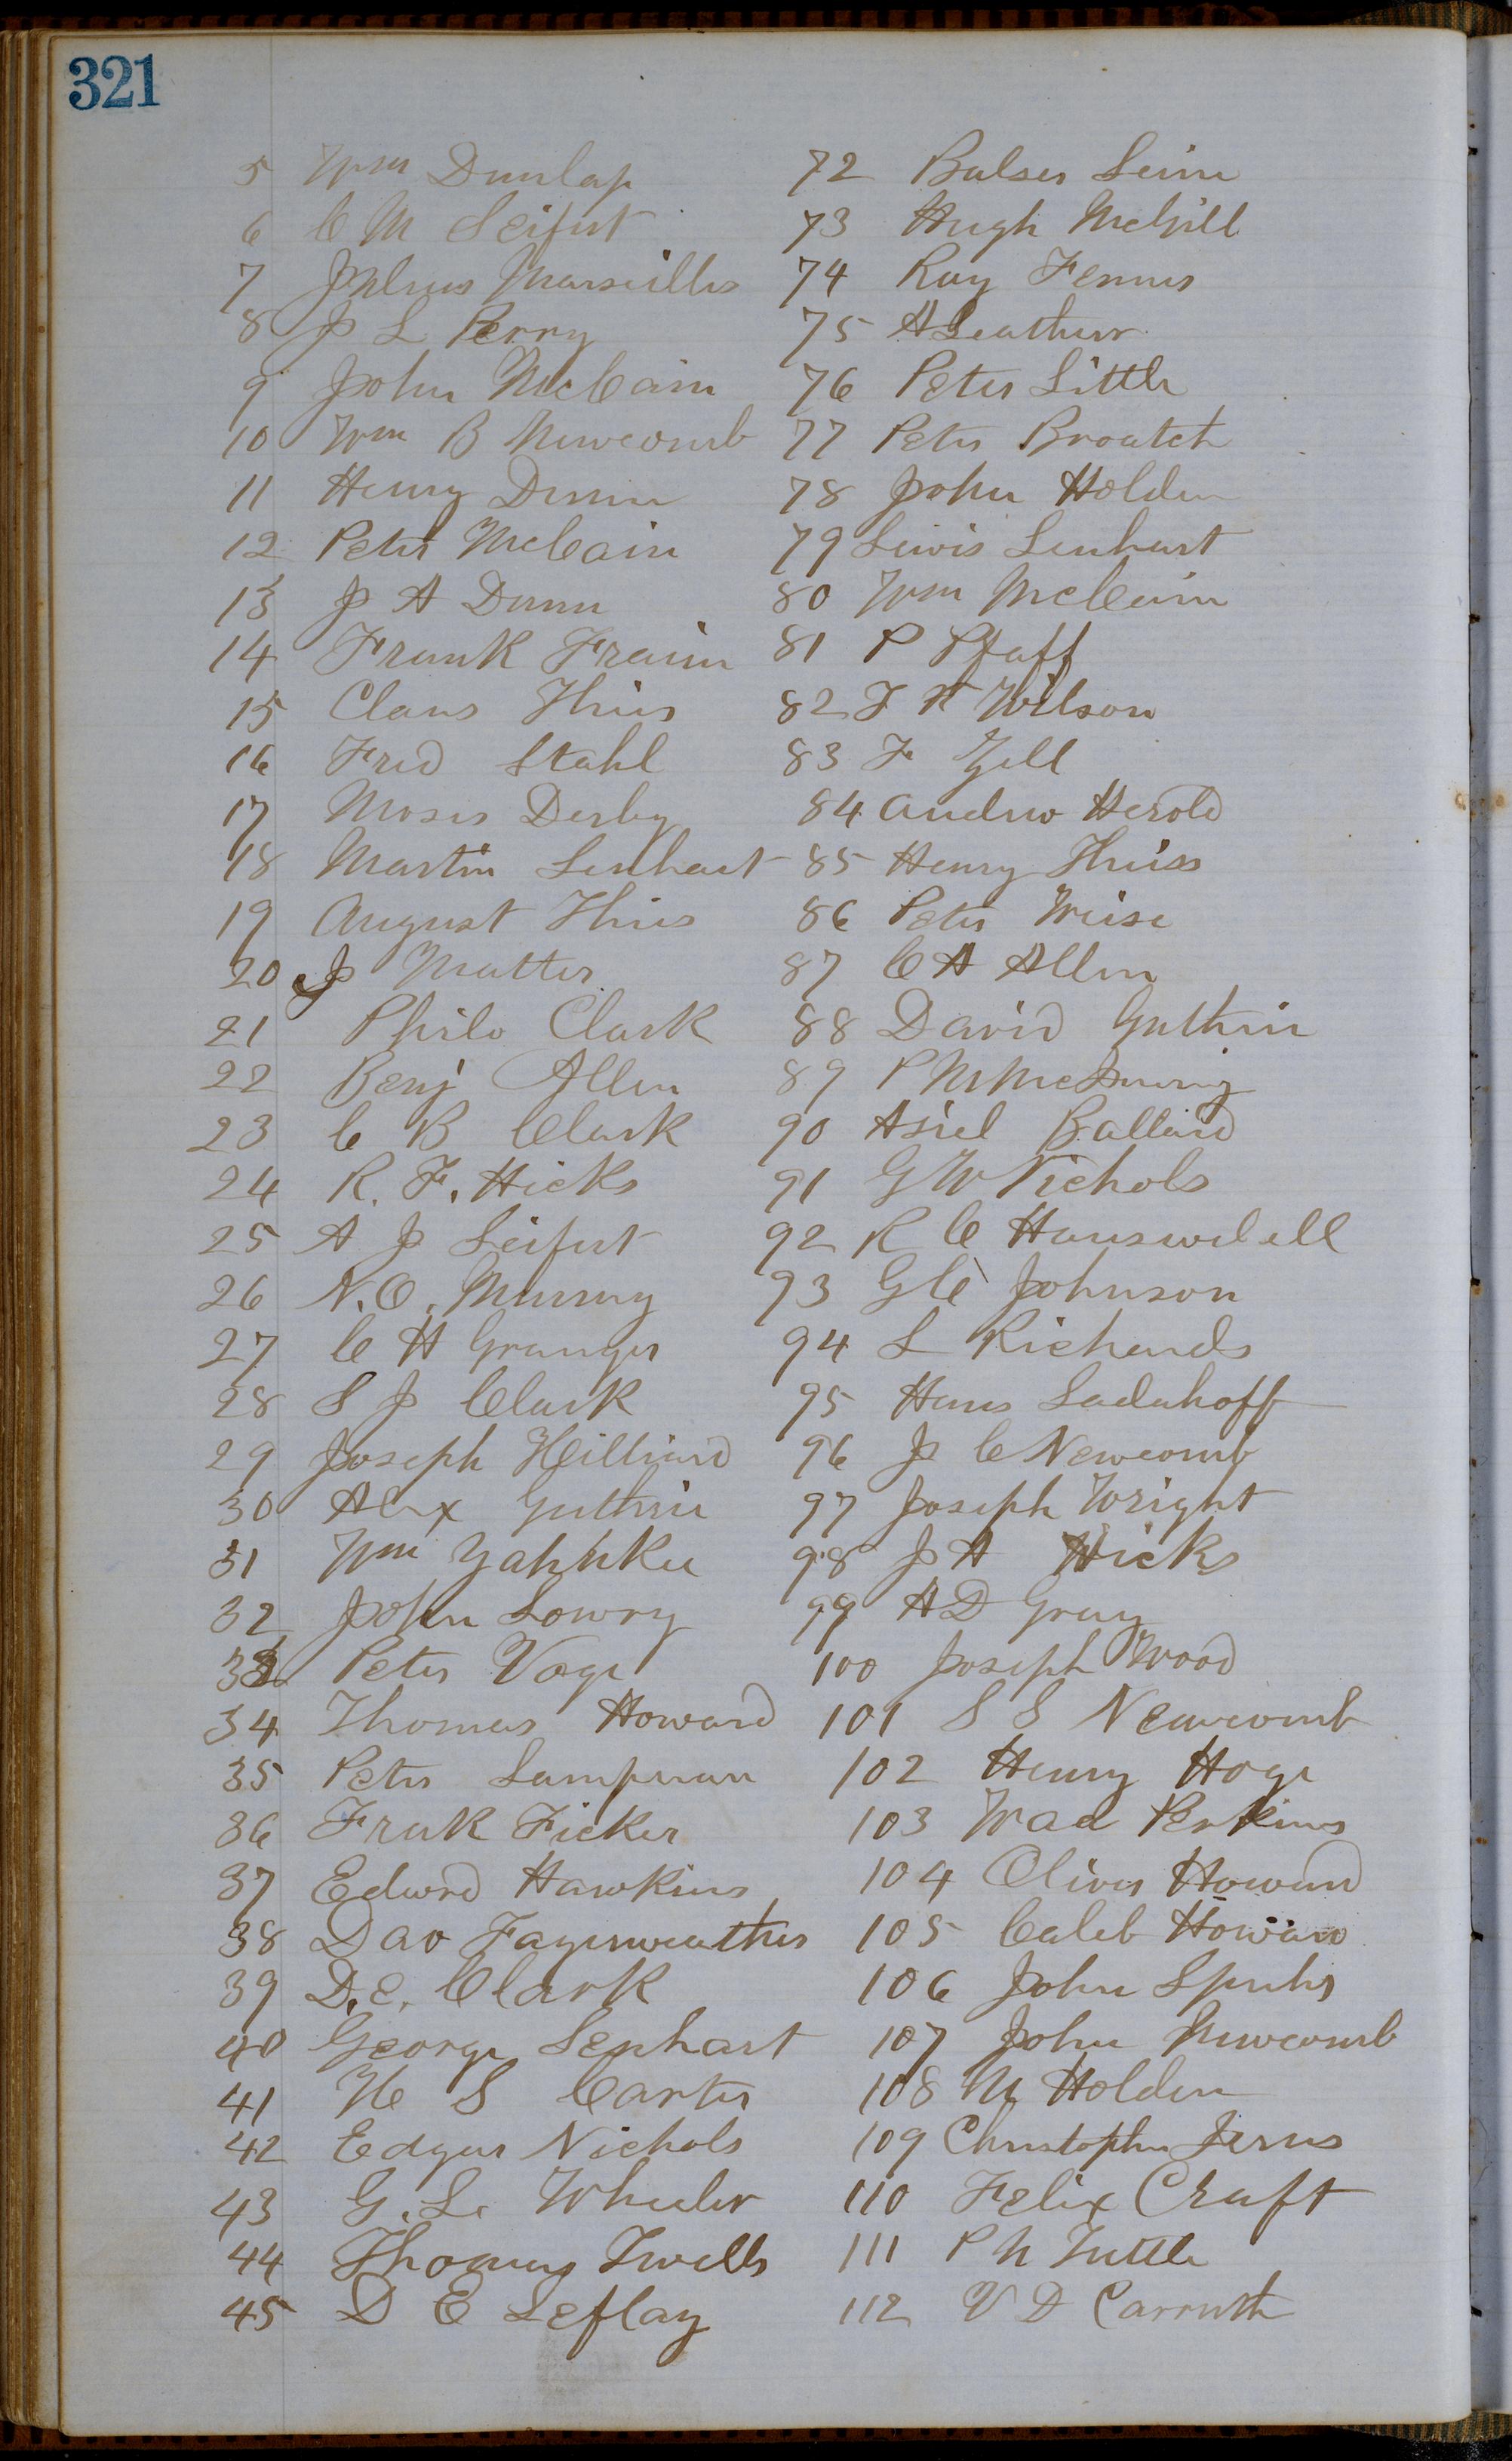 321
5 Wm Dunlap
6 C M Seifert
7 Julius Marseilles
8 J L Perry
9 John McCain
10 Wm B Newcomb
11 Henry Dunn
12 Peter McCain
13 J A Dunn
14 Frank Fraim
15 Claus Thies
16 Fred Stahl
17 Moses Derby
18 Martin Lenhart
19 August Thies
20 J Matter
21 Philo Clark
22 Benj Allen
23 C B Clark
24 R. F. Hicks
25 A J Seifert
26 N. O. Murray
27 C H Granger
28 S J Clark
29 Joseph Hilliard
30 Alex Guthrie
31 Wm Yahnke
32 John Lowry
33 Peter Voge
34 Thomas Howard
35 Peter Lampman
36 Frank Ficker
37 Edward Hawkins
38 Dav Fayerweather
39 D. E. Clark
40 George Lenhart
41 H S Carter
42 Edgar Nichols
43 G. L. Wheeler
44 Thomas Twells
45 D E Leflay
72 Balser
73 Hugh McGill
74 Ray
75 A Leathers
76 Peter Little
77 Peter Broatch
78 John Holden
79 Lewis Lenhart
80 Wm McCain
81 P Pfaff
82 Wilson
83 F Gell
84 Andrew Herold
85 Henry Thiess
86 Peter Weise
87 C A Allen
88 David Guthrie
89 P M
90 Asiel Ballard
91 G W Nichols
92 R C
93 G C Johnson
94 L Richards
95 Hans Ladehoff
96 J C Newcomb
97 Joseph Wright
98 J A Hicks
99 H D Gray
100 Joseph Wood
101 S S Newcomb
102 Henry Hoge
103 Perkins
104 Oliver Howard
105 Caleb Howard
106 John Spuhr
107 John Newcomb
108 M Holden
109 Christopher
110 Felix Craft
111 P N Tuttle
112 V D Carruth